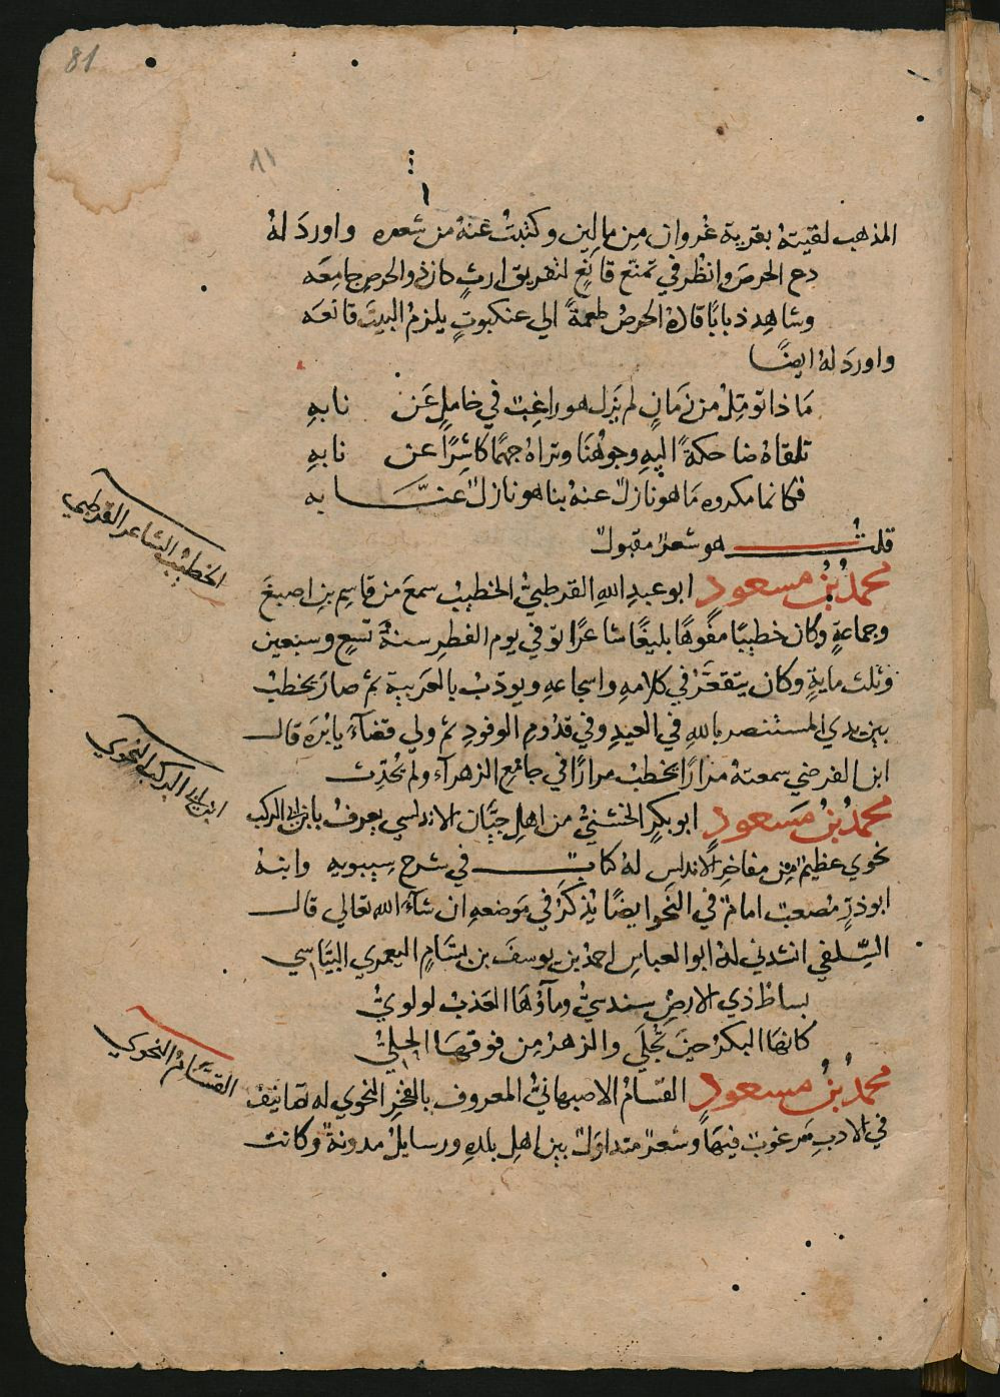 81
٨١
المذهب لقيته بقرية غروان من مالين وكتبتُ عنهُ من شعره واوردَ لهُ
دع الحرصَ وانظُر في تمتع قانعٍ لتفريق ارثٍ حازذو الحرصِ جامِعَه
وشاهِد ذبابًا قادهُ الحرصُ طعمةً الي عنكبوتٍ يلزمُ البيتَ قانعَه
واوردَ لهُ ايضًا
مَاذا تومّلُ من زمَانٍ لم يَزل هو راغِبٌ في خامِلٍ عَن نابهِ
تلقاهُ ضاحكةً اليهِ وجوهُنا وتراهُ جهمًا كاشِرًا عن نابهِ
فكانما مكروه مَا هو نازلٌ عنهُ بنا هو نازلٌ عنّا به
قلتُ هو شعرٌ مقبول
محمدُ بنُ مسعودٍ ابو عبدِ اللهِ القرطبيُّ الخطيبُ سمعَ من قاسِمِ بنِ اصبغَ
وجماعةٍ وكان خطيبًا مفوهًا بليغًا شاعرًا توفي يوم الفطرِ سنةَ تسعٍ وسبعين
وثلث مايةٍ وكان يتقعَّرُ في كلامهِ واسجاعهِ ويودّبُ بالعَربيةِ ثم صارَ يخطبُ
بين يدي المستنصر باللهِ في العيدِ وفي قدُومِ الوفودِ ثم ولي قضآءَ يابُرَةَ قال
ابن الفرضي سمعتهُ مرارًا يخطبُ مرارًا في جامع الزهرآءَ ولم يُحدّث
محمدُ بنُ مَسعودٍ ابو بكرٍ الخشنيُّ من اهلِ جيَّان الاندلسي يعرفُ بابن ابي الركب
نحوي عظيمٌ من مفاخرِ الاندلسِ لهُ كتابٌ في شرحِ سِيبويهِ وابنهُ
ابو ذرٍّ مُصعب امامٌ في النحو ايضًا يُذكَرُ في مَوضعهِ ان شآءَ الله تعالي قال
السِّلفي انشدني لهُ ابو العباسِ احمدُ بن يوسفَ بن بسّامٍ اليعمري البيّاسي
بساطُ ذي الارضِ سندسيُّ ومآؤهَا العَذبُ لولويُّ
كانهَا البكرُ حينَ تُجلَي والزهرُ مِن فوقهَا الحليُّ
محمدُ بنُ مسعودٍ القسّامُ الاصبهانيُّ المعروف بالفخرِ النحوي له تصانيف
في الادبِ مَرغوبٌ فيهَا وشعرٌ متداوَلٌ بين اهلِ بلدهِ ورسايلُ مدونةٌ وكانت
الخطيبُ الشاعر القرطبي
ابن ابي الركب النحوي
القسَّامُ النحوي